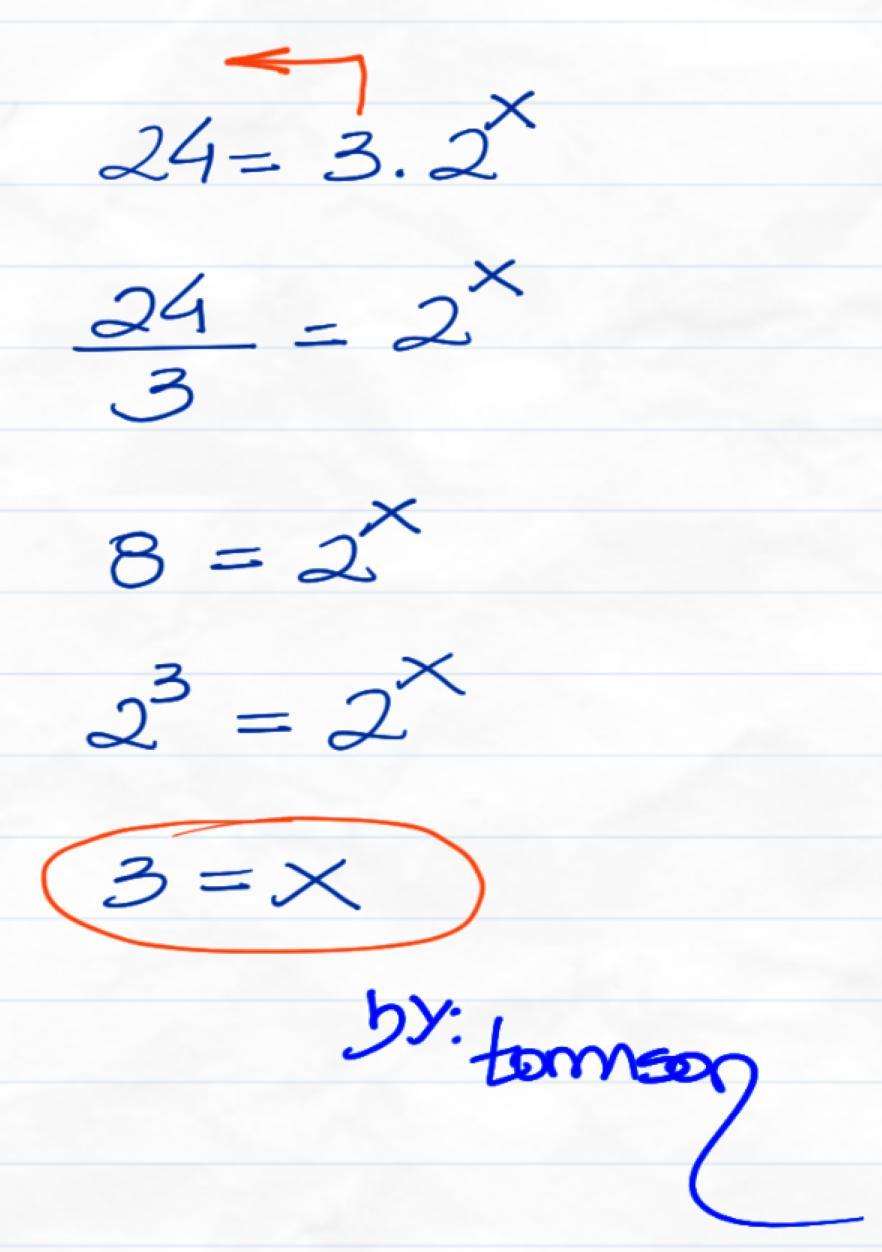 24 = 3 . 2^x
24/3 = 2^x
8 = 2^x
2^3 = 2^x
3 = x
by: tomson